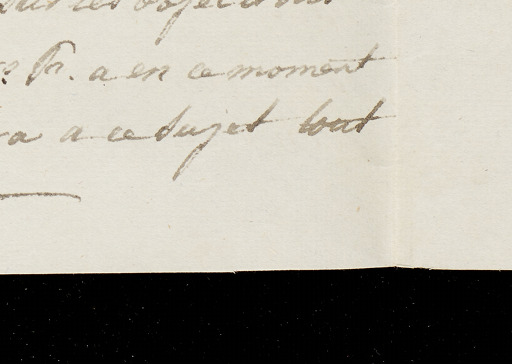 les objections
a en ce moment
a ce sujet tout